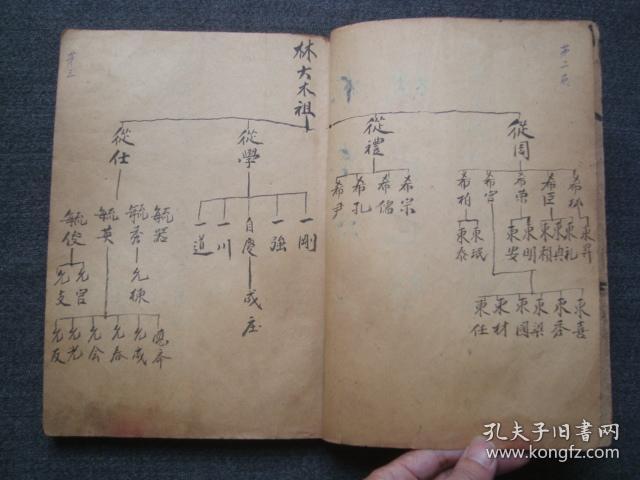 第二頁
從周
希臣
希榮
希宮
希柏
東昇
東礼
東典
東楨
東明
東安
東珉
東泰
東喜
東香
東樑
東國
東材
東任
從禮
希宗
希儒
希孔
希尹
林大木祖
從學
一剛
一強
自慶
一川
一道
成庄
從仕
毓英
毓俊
允棟
允官
允文
允成
允春
允公
允光
允友
第三
孔夫子旧书网
www.kongfz.com